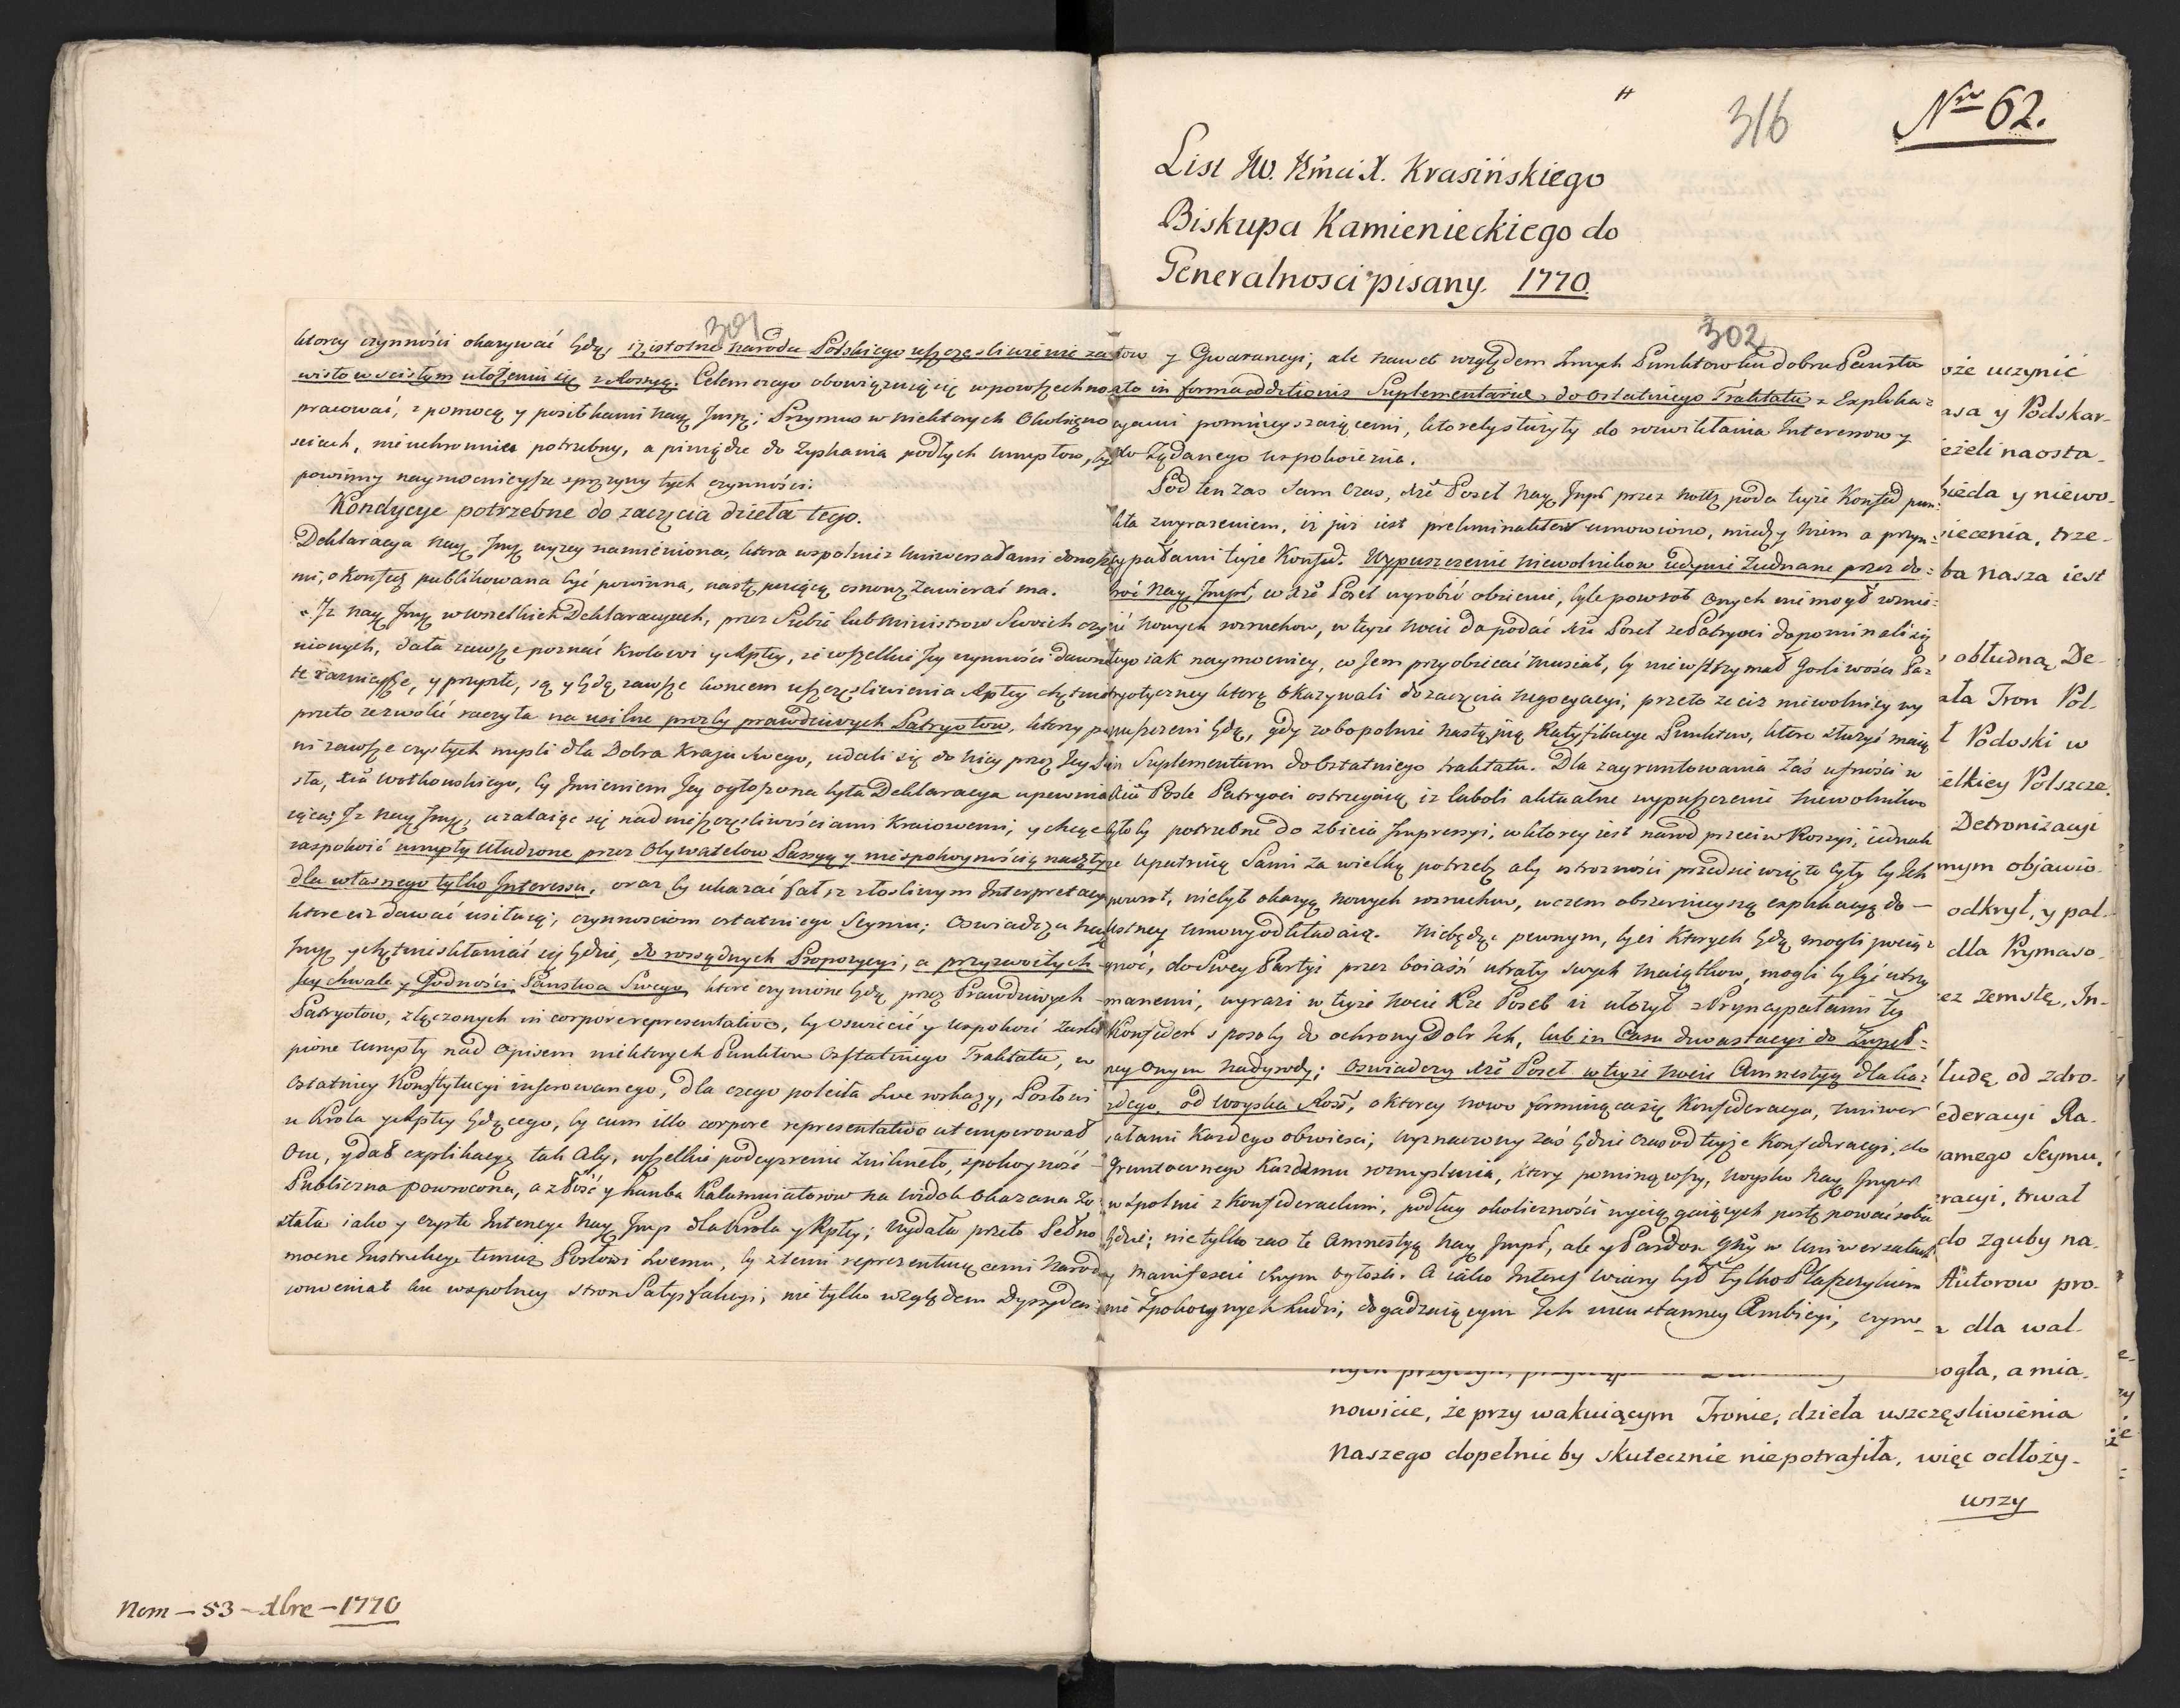 316
Nro 62.
List JW. Jmci X. Krasińskiego
Biskupa Kamienieckiego do
Generalnosci pisany. 1770.
301
ktorey czynności okazywać będą, iż istotne narodu Polskiego uszczęsliwienie za
wisło w scisłym ułożeniu się z Rossyą. Celem czego obowiązuią się w powszechno
pracować, z pomocą y posiłkami Nayj. Imp.; Przymus w niektorych Okoliczno
sciach, nieuchronnie potrzebny, a pieniądze do Zyskania podłych umysłow, być
powinny naymocnieysze sprzęzyny tych czynności.
Kondycye potrzebne do zaczęcia dzieła tego.
Deklaracya Nayj. Imp. wyzey namieniona, ktora wspolnie z Uniwersałami donoszą
mi, o Konfed. publikowana być powinna, następuiącą osnowę Zawierać ma.
"Iż Nayj. Imp. w wszelkich Deklaracyach, przez Siebie lub Ministrow Swoich czy
nionych, dała zawsze poznać Krolowi y Rptey, że wszelkie Jey czynności dawn
teraznieysze, y przyszłe, są y będą zawsze koncem uszczęsliwienia Rptey chętnie
przeto zezwolić raczyła na usilne prozby prawdziwych Patryotow, ktorzy pe
ni zawsze czystych mysli dla Dobra Kraju Swego, udali się do Niey przez Jey
sła, Xcia Wołkonskiego, by Jmieniem Jey ogłoszona była Deklaracya upewnia
iąca; Iż Nayj. Imp. uzalaiąc się nad nieszczęsliwościami Kraiowemi, y chcąc
zaspokoić umysły złudzone przez Obywatelow Passyą y niespokoynością nadęty
dla własnego tylko Interessu, oraz by ukazać fałsz złosliwym Interpretacy
ktore iż dawać usiłuią, czynnosciom ostatniego Seymu; Oswiadcza Nayj.
Imp. y chętnie skłaniać się będzie, do rozsądnych Propozycyi, a przyzwoitych
Jey chwale y Godności Panstwa Swego, ktore czynione będą przez Prawdziwych
Patryotow, złączonych in corpore representativo, by oswiecić y uspokoić Zaslē
pione umysły nad opisem niektorych Punktow Ostatniego Traktatu, w
Ostatniey Konstytucyi inserowanego, dla czego poleciła Swe rozkazy, Posłowi
u Krola y Rptey będącego, by cum illo corpore representativo attemperował
One, y dał explikacyą tak Aby, wszelkie podeyzrenie Znikneło, spokoyność
Publiczna powrocona, a złość y hanba Kalumniatorow na widok Okazana Zo
stała iako y czyste Intencye Nayj. Imp. dla Krola y Rptey; Wydała przeto Pełno
mocne Instrukcye temuz Posłowi Swemu, by z temi reprezentuiącemi Narod
conveniał ku wspolney stron Satysfakcyi, nie tylko względem Dyssyden
302
tow y Gwarancyi; ale nawet względem Innych Punktow ku dobru Panstwa
ato in forma additionis Suplementariae, do Ostatniego Traktatu z Explika=
cyami pomnieyszaiącemi, ktore by służyły do rozwikłania Interessow y
do Ządanego uspokoienia.
Pod ten zas Sam Czas, Xże Poseł Nayj. Imp. przez Nottę poda teyże Konfed. pun:
kta z wyrazeniem, iż już iest preliminaliter umowiono, między Niem a pryn:
cypałami teyże Konfed. Wypuszczenie Niewolnikow iedynie Zjednane przez do=
broć Nayj. Imp., co Xże Poseł wyrobić obiecuie, byle powrot Onych nie mogł wznie=
cić Nowych rozruchow, w teyze Nocie da podać Xże Poseł ze Patryoci dopominali się
tego iak naymocniey, co Jem przyobiecać musiał, by nie wstrzymał Gorliwości Pa=
tryotyczney ktorą Okazywali do zaczęcia Negocyacyi, przeto ze ciż niewolnicy wy
puszczeni będą, gdy zobopolnie nastąpią Ratyfikacye Punktow, ktore służyć maią
in Suplementum do Ostatniego traktatu. Dla zagruntowania Zaś ufności w
Xciu Posle Patryoci ostrzegaią iż luboli aktualne wypuszczenie Niewolnikow
było by potrzebne do zbicia Impressyi, w ktorey iest narod przeciw Rossyi, iednak
ze upatruią Sami za wielką potrzebę aby ostrozności przedsięwzięte były by Ich
powrot, niebył okazyą Nowych rozruchow, w czem obszernieyszą explikacyą do
ustney Umowy odkładaią. Niebędąc pewnym, by ci Ktorych będą mogli pociąg=
nąć, do Swey Partyi przez boiaźń utraty swych Maiątkow, mogli by być utrzy
manemi, wyrazi w teyże Nocie Xże Poseł iż ułożył z Pryncypałami tey
Konfeder. sposoby do ochrony Dobr Ich, lub in Casu dewastacyi do Zupeł=
ney Onym Nadgrody; Oswiadczy Xże Poseł w teyże Nocie Amnestyą dla każ=
zdego, od Woyska Ross., o ktorey Nowo formuiąca się Konfederacya, Uniwer
sałami Kazdego obwiesci; Wyznaczony zaś będzie czas od teyże Konfederacyi, do
Gruntownego Kazdemu rozmyslenia, ktory pominąwszy, Woysko Nayj. Imper.
wspolnie z Konfederackim, podług okoliczności wyciągaiących postępować sobie
będzie; nie tylko zas te Amnestyą Nayj. Imp., ale y Pardon Gñy w Uniwersałach
y Manifescie Swym ogłosi. A iako Interes Wiary był tylko Płaszczykiem
nie Spokoynych Ludzi, dogadzaiącym Ich nieustanney Ambicyi, czym
oże uczynić
asa y Podskar-
eżeli na osta-
ieżda y niewo-
iecenia, trze-
ba nasza iest
obłudną De-
ała Tron Pol-
Podoski w
ielkiey Polszcze.
Detronizacyi
nym objawio-
odkrył, y pal-
dla Prymaso-
ez zemstę, In-
tudę od zdro-
ederacyi Ra-
amego Seymu,
racyi, trwał
do zguby na-
Autorow pro-
dla wal-
ogła, a mia-
nowicie, że przy wakuiącym Tronie, dzieła uszczęsliwienia
Naszego dopełnić by skutecznie niepotrafiła, więc odłoży-
wszy
Nom – 53 – xbre – 1770